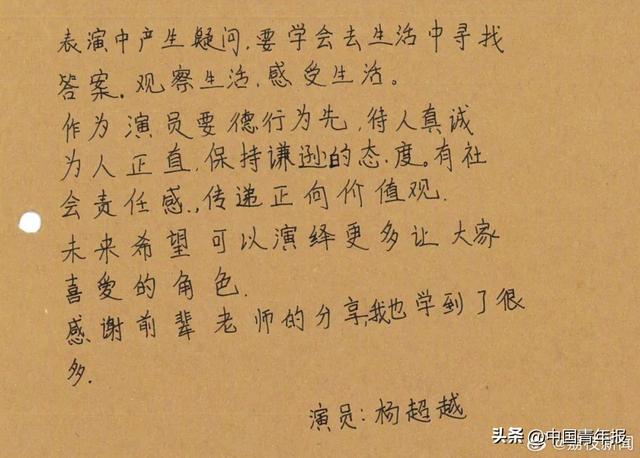 表演中产生疑问,要学会去生活中寻找
答案。观察生活,感受生活。
作为演员要德行为先,待人真诚
为人正直,保持谦逊的态度。有社
会责任感,传递正向价值观.
未来希望可以演绎更多让大家
喜爱的角色.
感谢前辈老师的分享,我也学到了很
多.
演员:杨超越
头条@中国青年报
@荔枝新闻